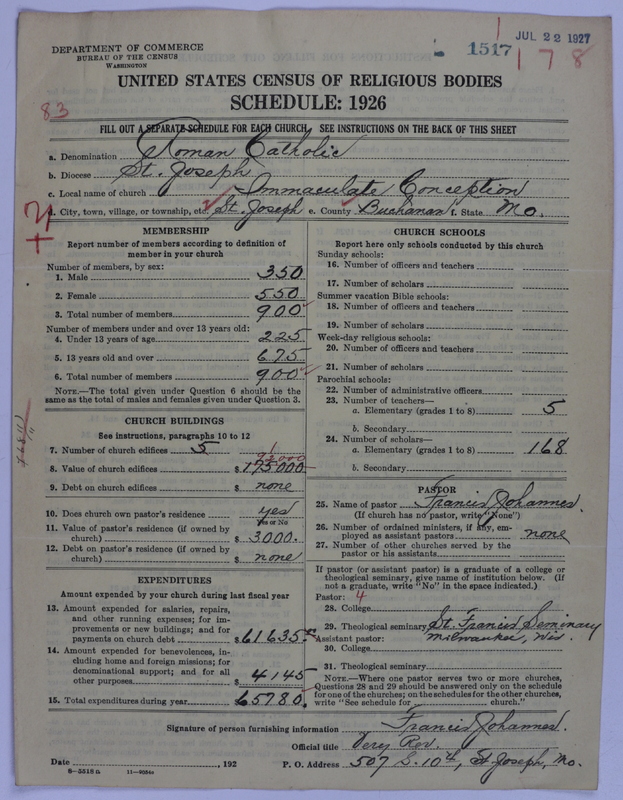 DEPARTMENT OF COMMERCE
BUREAU OF THE CENSUS
WASHINGTON
JUL 22 1927
1517
178
UNITED STATES CENSUS OF RELIGIOUS BODIES
SCHEDULE: 1926
83
FILL OUT A SEPARATE SCHEDULE FOR EACH CHURCH. SEE INSTRUCTIONS ON THE BACK OF THIS SHEET
a. Denomination Roman Catholic
b. Diocese St. Joseph
c. Local name of church Immaculate Conception
d. City, town, village, or township, etc. St. Joseph e. County Buchanan f. State Mo.
MEMBERSHIP
Report number of members according to definition of
member in your church
Number of members, by sex:
1. Male 350
2. Female 550
3. Total number of members 900
Number of members under and over 13 years old:
4. Under 13 years of age 225
5. 13 years old and over 675
6. Total number of members 900
NOTE.—The total given under Question 6 should be the
same as the total of males and females given under Question 3.
CHURCH BUILDINGS
See instructions, paragraphs 10 to 12
7. Number of church edifices 5 1
8. Value of church edifices $175000
9. Debt on church edifices $ none
10. Does church own pastor's residence yes
Yes or No
11. Value of pastor's residence (if owned by
church) $3000.
12. Debt on pastor's residence (if owned by
church) $ none
EXPENDITURES
Amount expended by your church during last fiscal year
13. Amount expended for salaries, repairs,
and other running expenses; for im-
provements or new buildings; and for
payments on church debt $61635
14. Amount expended for benevolences, in-
cluding home and foreign missions; for
denominational support; and for all
other purposes $ 4145
15. Total expenditures during year $65780.
CHURCH SCHOOLS
Report here only schools conducted by this church
Sunday schools:
16. Number of officers and teachers
17. Number of scholars
Summer vacation Bible schools:
18. Number of officers and teachers
19. Number of scholars
Week-day religious schools:
20. Number of officers and teachers
21. Number of scholars
Parochial schools:
22. Number of administrative officers
23. Number of teachers—
a. Elementary (grades 1 to 8) 5
b. Secondary
24. Number of scholars—
a. Elementary (grades 1 to 8) 168
b. Secondary
PASTOR
25. Name of pastor Francis Johannes.
(If church has no pastor, write "None")
26. Number of ordained ministers, if any, em-
ployed as assistant pastors none
27. Number of other churches served by the
pastor or his assistants
If pastor (or assistant pastor) is a graduate of a college or
theological seminary, give name of institution below. (If
not a graduate, write "No" in the space indicated.)
Pastor: 4
28. College
29. Theological seminary St. Francis Seminary
Assistant pastor: Milwaukee, Wis.
30. College
31. Theological seminary
NOTE.—Where one pastor serves two or more churches,
Questions 28 and 29 should be answered only on the schedule
for one of the churches; on the schedules for the other churches,
write "See schedule for church."
Signature of person furnishing information Francis Johannes.
Official title Very Rev.
Date , 192 P. O. Address 507 S. 10th, St Joseph, Mo.
8—5518 a 11—9058a